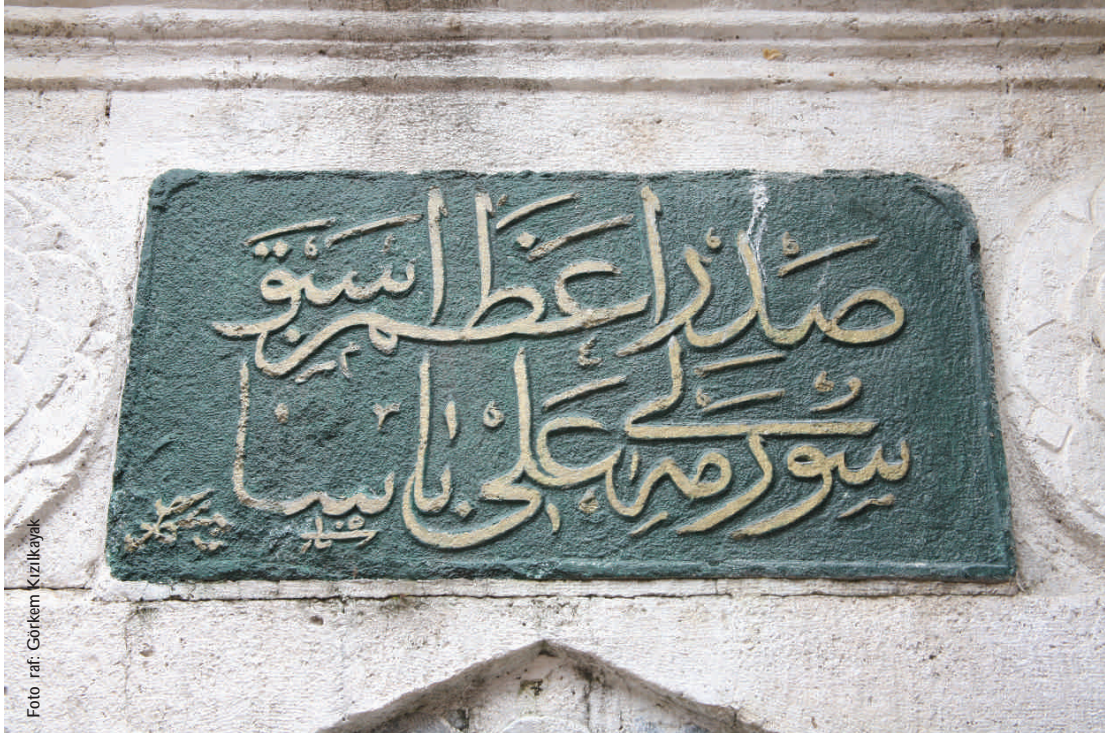 صدر اعظم اسبق
سورمه لی علی پاشا
Foto raf: Görkem Kızılkayak